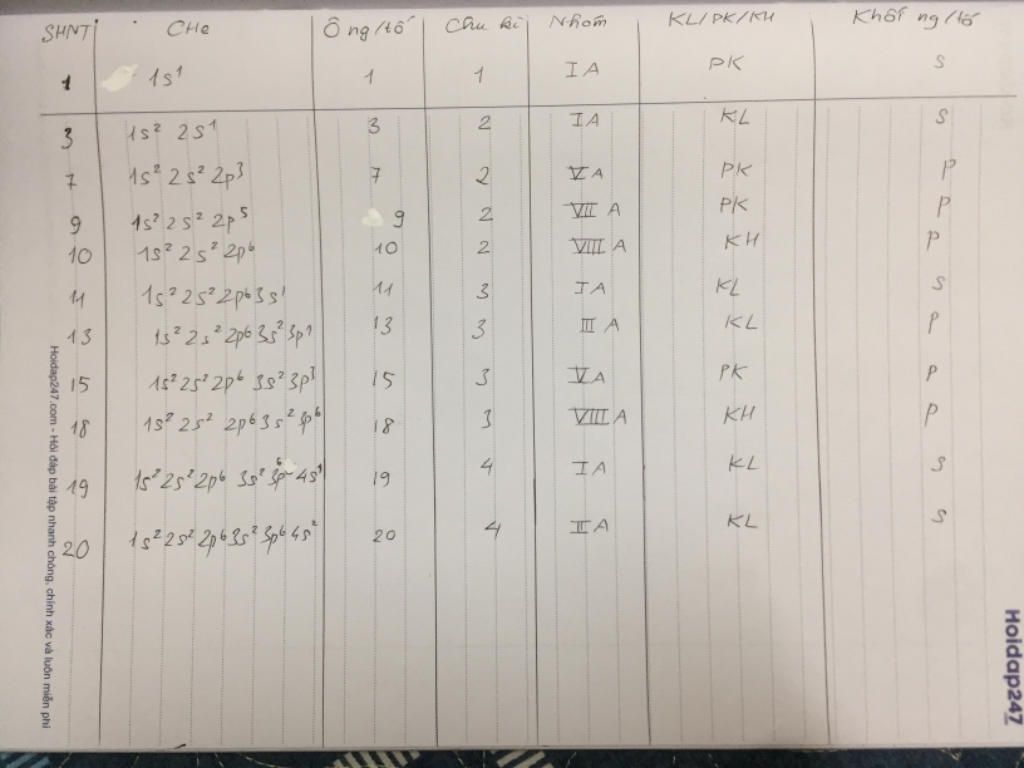 SHNT CHe Ô ng/tố Chu kì Nhóm KL/PK/KH Khối ng/tố
1 1s¹ 1 1 IA PK s
3 1s² 2s¹ 3 2 IA KL s
7 1s² 2s² 2p³ 7 2 VA PK p
9 1s² 2s² 2p⁵ 9 2 VII A PK p
10 1s² 2s² 2p⁶ 10 2 VIII A KH p
11 1s² 2s² 2p⁶ 3s¹ 11 3 IA KL s
13 1s² 2s² 2p⁶ 3s² 3p¹ 13 3 III A KL p
15 1s² 2s² 2p⁶ 3s² 3p³ 15 3 VA PK p
18 1s² 2s² 2p⁶ 3s² 3p⁶ 18 3 VIII A KH p
19 1s² 2s² 2p⁶ 3s² 3p⁶ 4s¹ 19 4 IA KL s
20 1s² 2s² 2p⁶ 3s² 3p⁶ 4s² 20 4 II A KL s
Hoidap247.com - Hỏi đáp bài tập nhanh chóng, chính xác và luôn miễn phí
Hoidap247